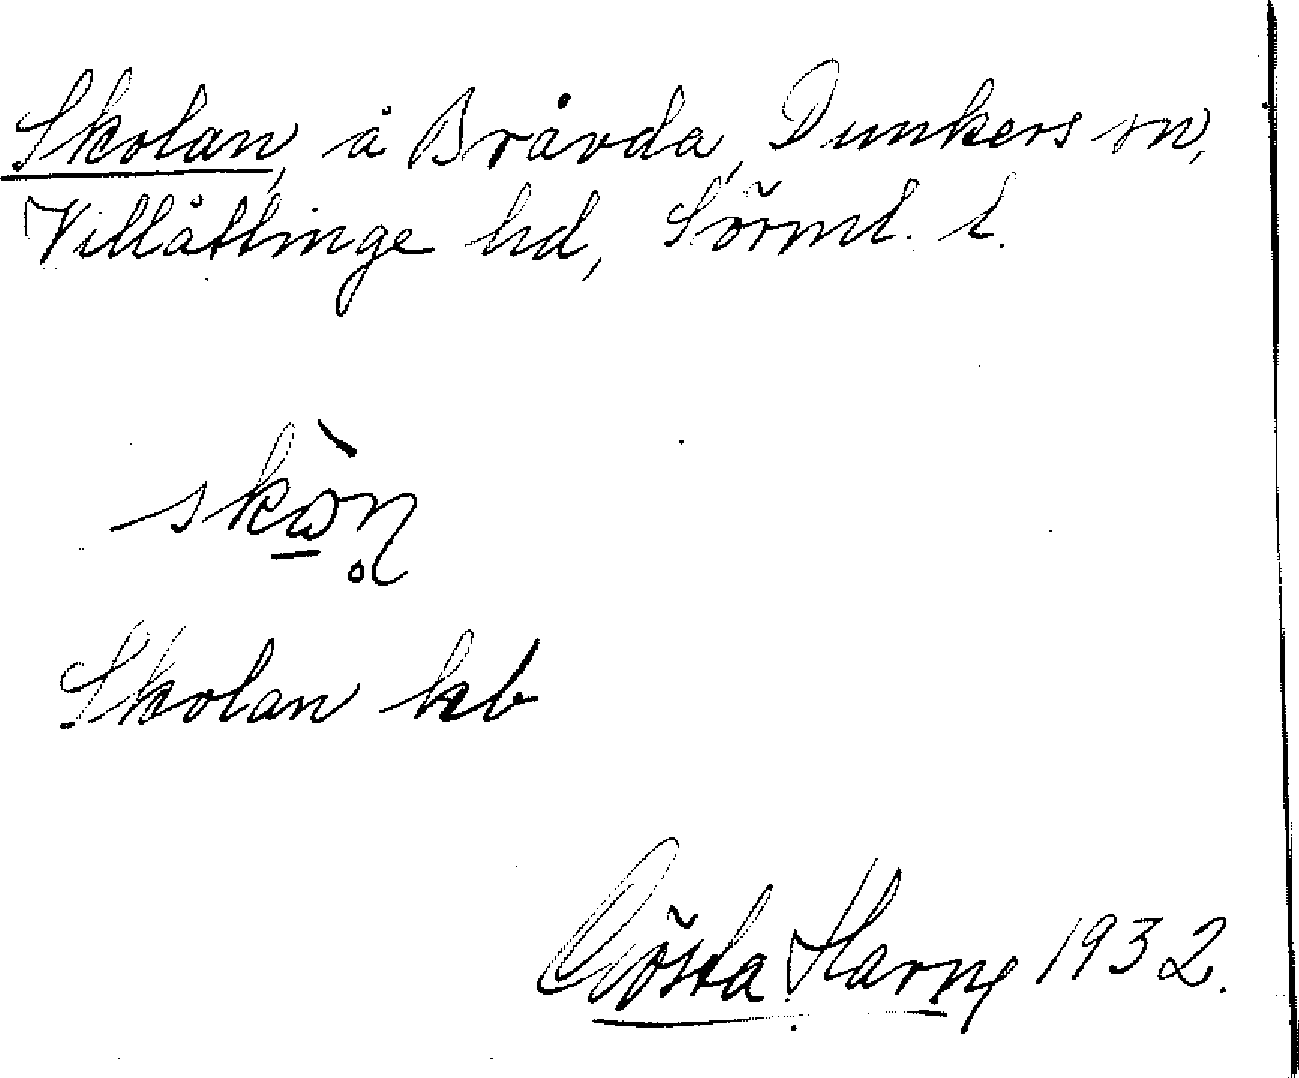 Skolan, å Bråvda, Dunkers sn,
Villåttinge hd, Sörml. l.
Skolan kb
Gösta Harne 1932.